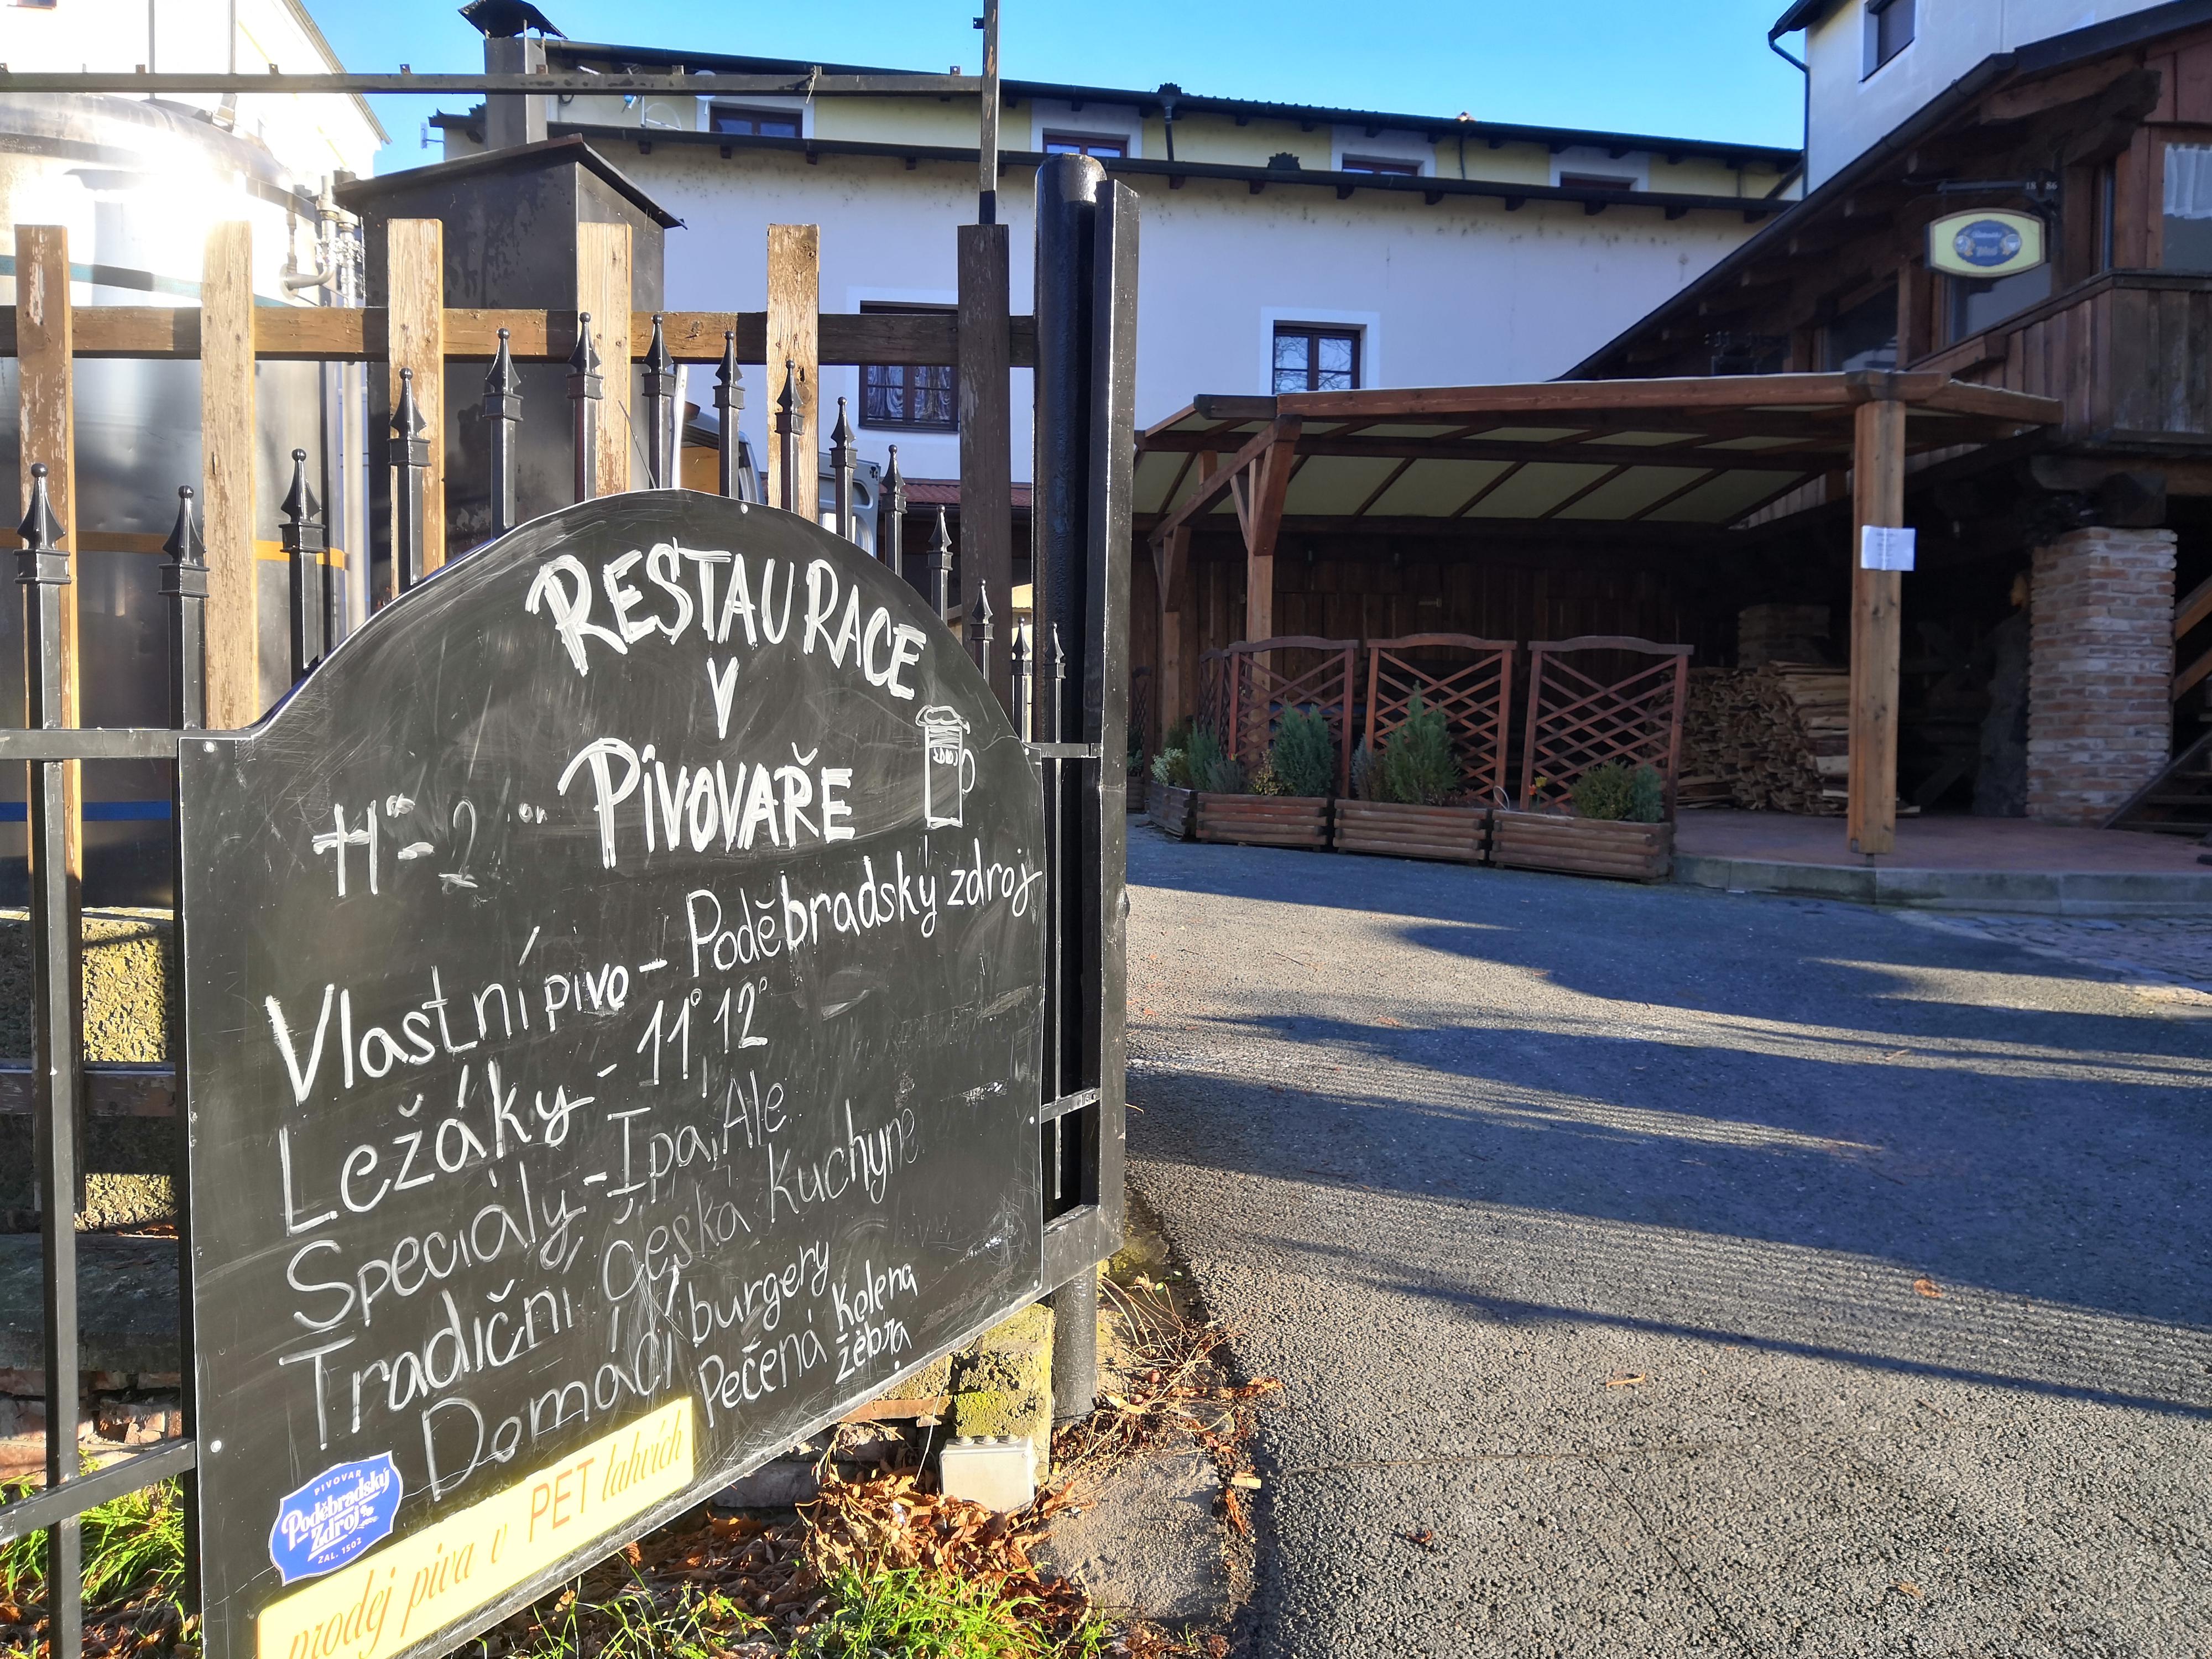 RESTAURACE
V
PIVOVAŘE
11°° - 2
Vlastní pivo - Poděbradský zdroj
Ležáky - 11°, 12°
Speciály - Ipa, Ale
Tradiční Česká Kuchyně
Domácí burgery
Pečená Kolena
žebra
PIVOVAR
Poděbradský
Zdroj
ZAL. 1502
prodej piva v PET lahvích
18 86